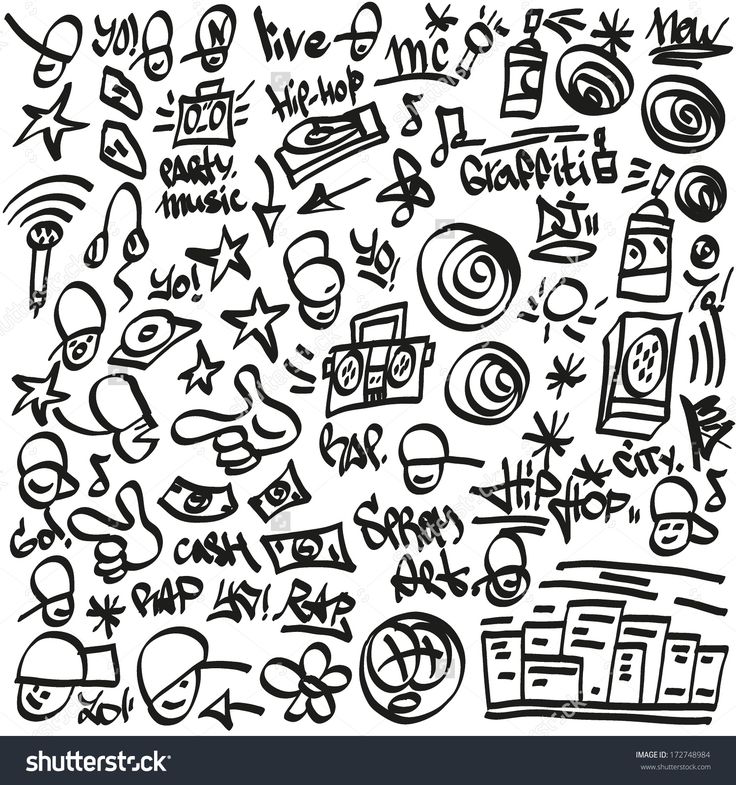 Yo!
N
live
MC
New
Hip-Hop
Party.
music
Graffiti
DJ
Yo
Yo!
Yo!
RAP.
CITY.
Hip
Hop
Go!
Spray
Art.
CASH
RAP
YO!
RAP
Yo!
shutterstock
IMAGE ID: 172748984
www.shutterstock.com